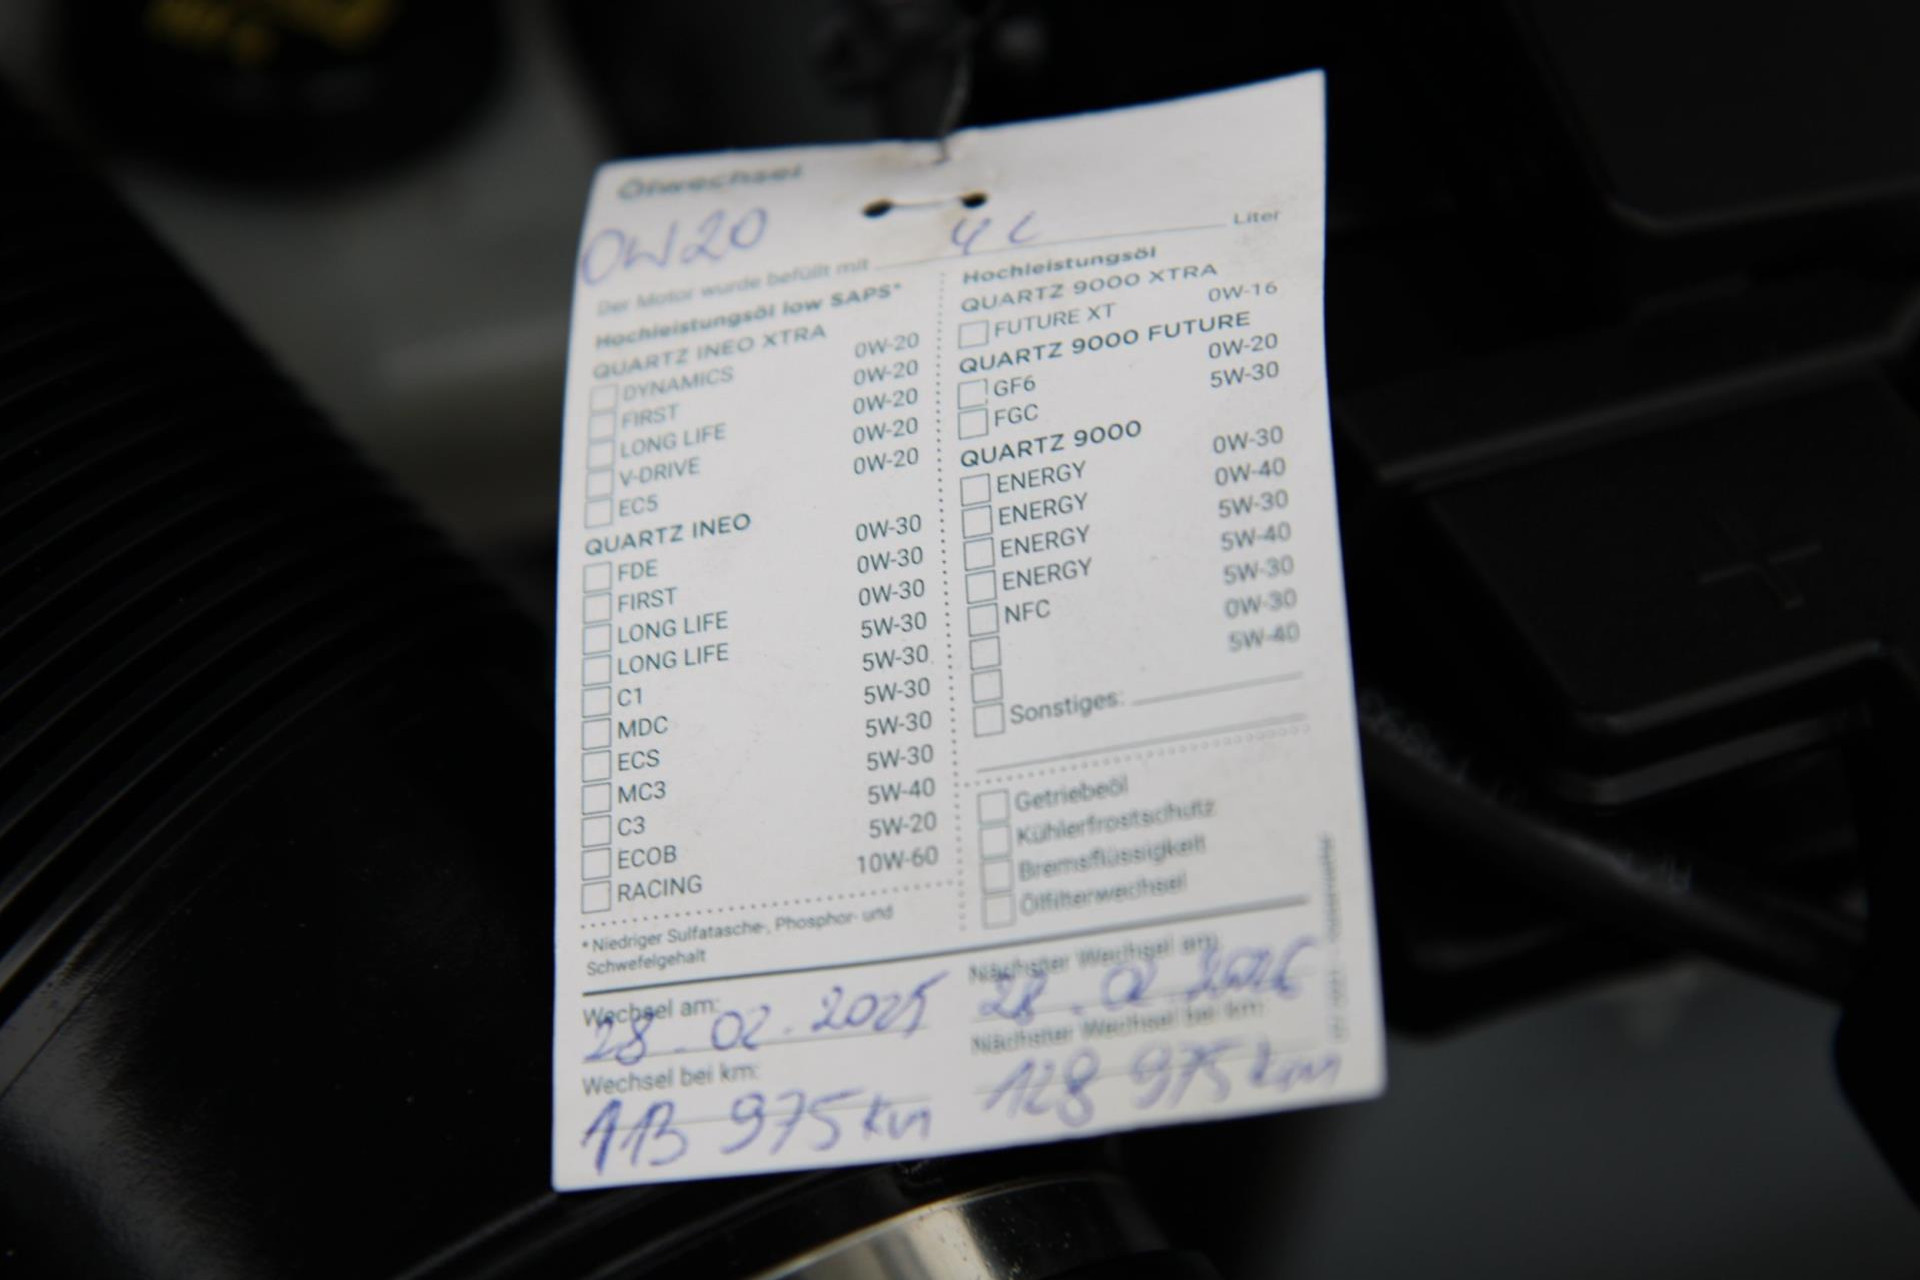 Ölwechsel
0W20
Der Motor wurde befüllt mit 4 L Liter
Hochleistungsöl low SAPS*
QUARTZ INEO XTRA
DYNAMICS 0W-20
FIRST 0W-20
LONG LIFE 0W-20
V-DRIVE 0W-20
EC5 0W-20
QUARTZ INEO
FDE 0W-30
FIRST 0W-30
LONG LIFE 0W-30
LONG LIFE 5W-30
C1 5W-30
MDC 5W-30
ECS 5W-30
MC3 5W-30
C3 5W-40
ECOB 5W-20
RACING 10W-60
* Niedriger Sulfatasche-, Phosphor- und
Schwefelgehalt
Hochleistungsöl
QUARTZ 9000 XTRA
FUTURE XT 0W-16
QUARTZ 9000 FUTURE
GF6 0W-20
FGC 5W-30
QUARTZ 9000
ENERGY 0W-30
ENERGY 0W-40
ENERGY 5W-30
ENERGY 5W-40
NFC 5W-30
0W-30
5W-40
Sonstiges:
Getriebeöl
Kühlerfrostschutz
Bremsflüssigkeit
Ölfilterwechsel
Wechsel am:
28.02.2025
Wechsel bei km:
113 975 km
Nächster Wechsel am:
28.02.2026
Nächster Wechsel bei km:
128 975 km